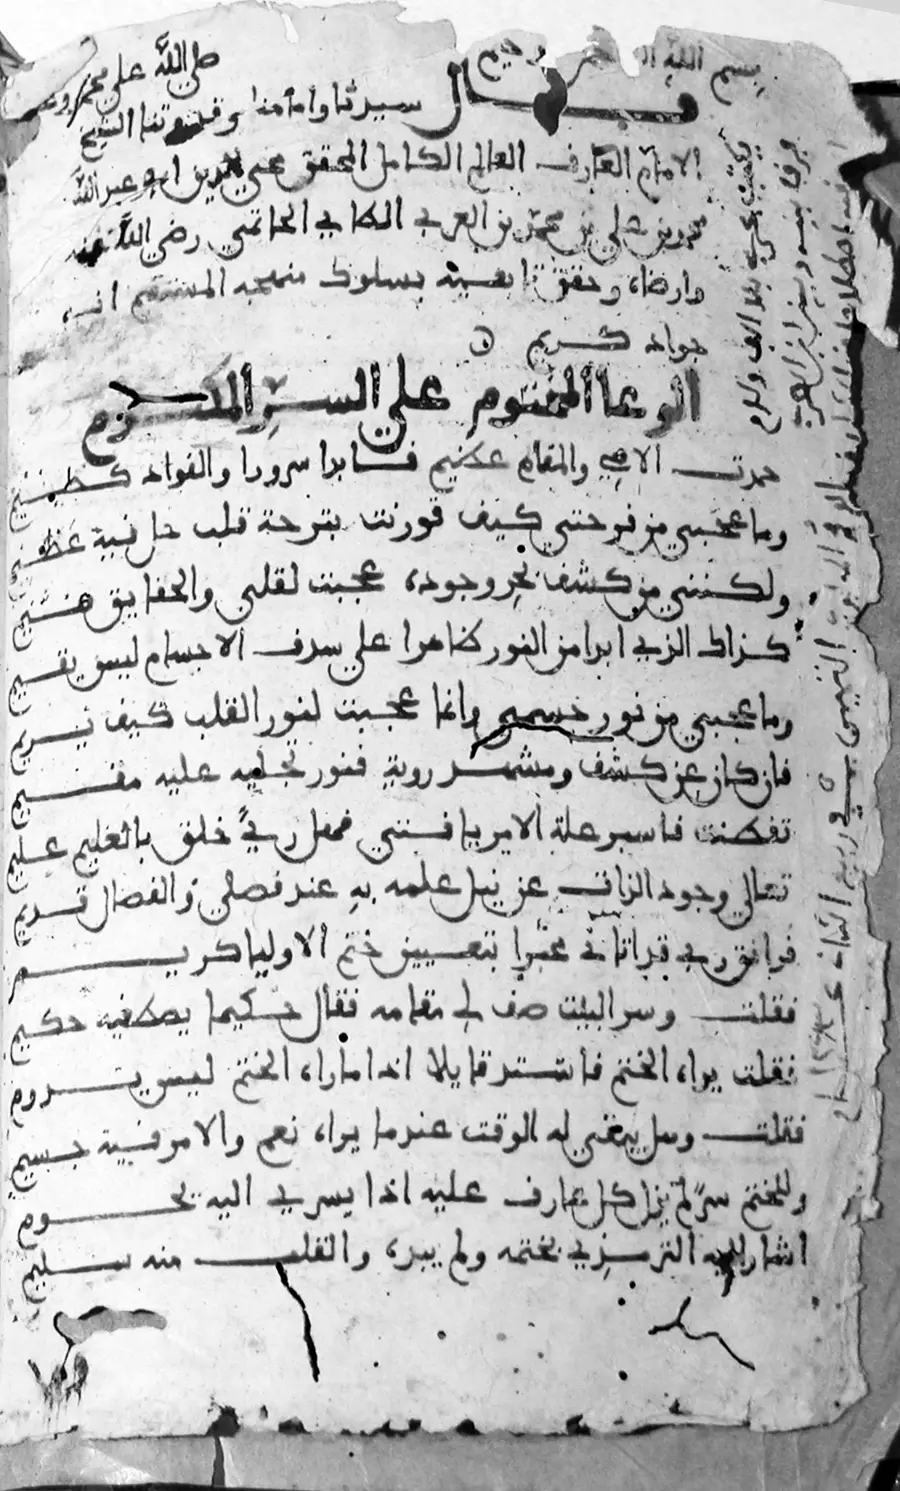 بسم الله الرحمن الرحيم صلى الله على محمد
قال سيدنا وإمامنا وقدوتنا الشيخ
الامام العارف العالم الكامل المحقق محي الدين ابو عبد الله
محمد بن علي بن محمد بن العربي الطاءي الحاتمي رضي الله عنه
وارضاه وحققنا بسلوك منهجه المستقيم انه
جواد كريم
الوعا المختوم على السر المكتوم
حمدت الاهي والمقام عظيم فابدا سرورا والفواد كظيم
وما عجبي من فرحتي كيف قورنت بترحة قلب حل فيه عظيم
ولكنني من كشف بحر وجوده عجبت لقلبي والحقايق هيم
كذاك الذي ابدا من النور ظاهرا على سدف الاجسام ليس يقيم
وما عجبي من نور جسمي وانما عجبت لنور القلب كيف يريم
فان كان عن كشف ومشهد روية فنور تجليه عليه مقيم
تفطنت فاسبر علة الامر يا فتى فهل ربي خلق بالعليم عليم
تعالى وجود الذات عن نيل علمه به عند فصلي والفصال قديم
فرانق ربي قد اتاني مخبرا بتعيين ختم الاوليا كريم
فقلت وسر البيت صف لي مقامه فقال حكيما يصطفيه حكيم
فقلت يراه الختم فاشتد قايلا اذا ما راه الختم ليس يدوم
فقلت وهل يبقى له الوقت عندما يراه نعم والامر فيه جسيم
وللختم سر لم يزل كل عارف عليه اذا يسري اليه يحوم
اشار اليه الترمذي بختمه ولم يبده والقلب منه سليم